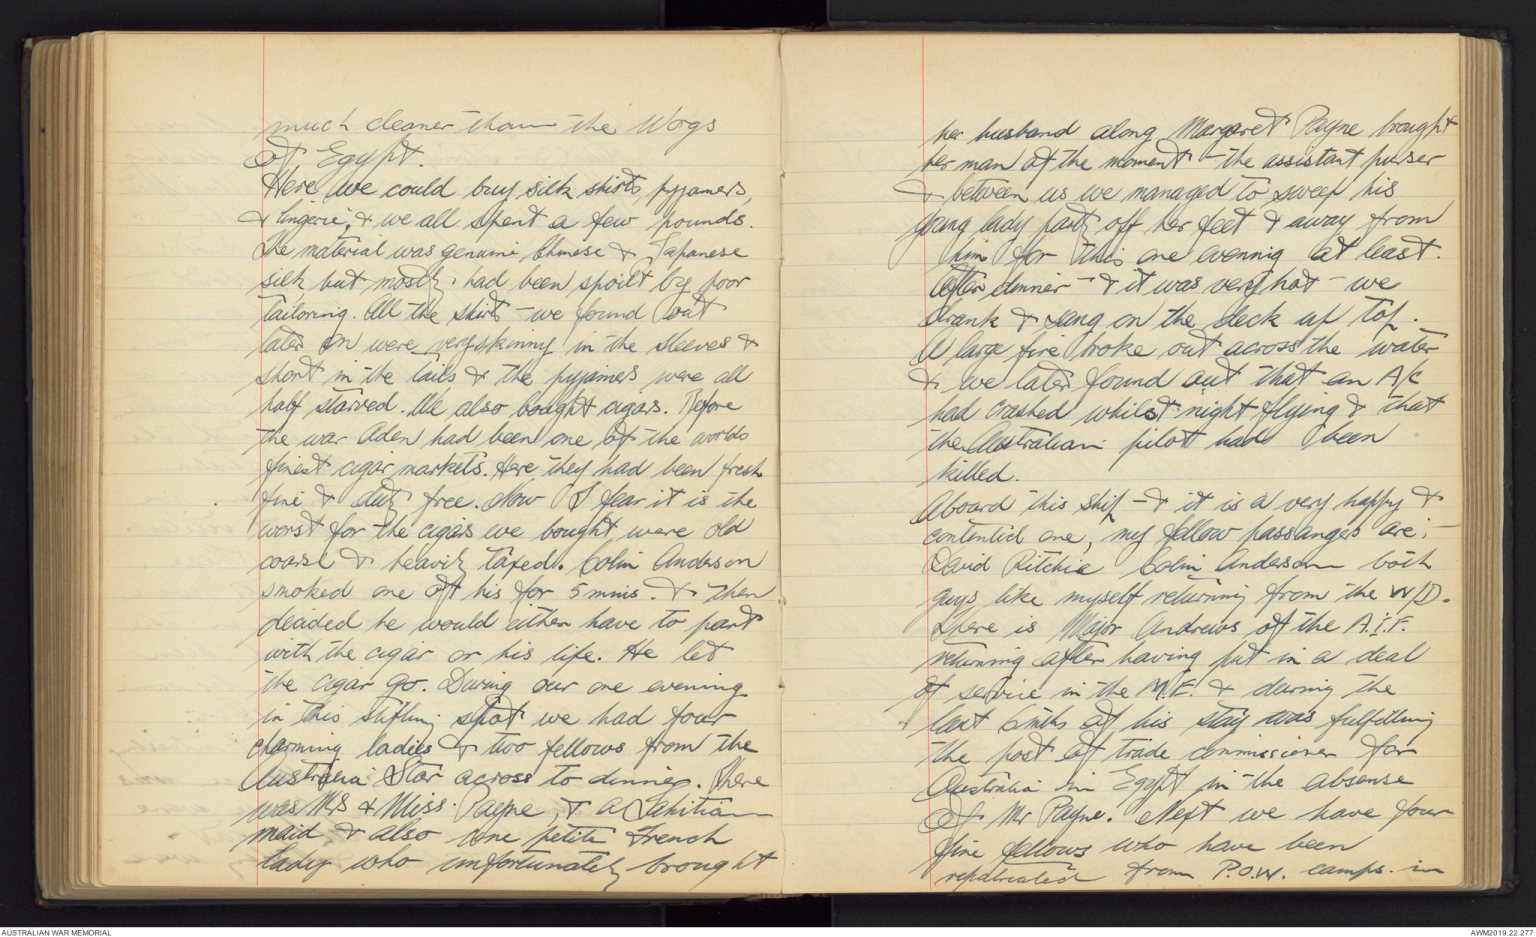 much cleaner than the Wogs
of Egypt.
Here we could buy silk shirts, pyjamers,
& lingerie, & we all spent a few pounds.
The material was genuine Chinese & Japanese
silk but mostly had been spoilt by poor
tailoring. All the shirts - we found out
later on were very skinny in the sleeves &
short in the tails & the pyjamers were all
half starved. We also bought cigars. Before
the war Aden had been one of the worlds
finest cigar markets. Here they had been fresh
fine & duty free. Now I fear it is the
worst for the cigars we bought were old
coarse & heavily taxed. Colin Anderson
smoked one of his for 5 mins. & then
decided he would either have to part
with the cigar or his life. He let
the cigar go. During our one evening
in this stifling spot we had four
charming ladies & two fellows from the
Australia Star across to dinner. There
was Mrs & Miss Payne, & a Tahitian
maid & also one petite French
lady who unfortunately brought
her husband along Margaret Payne brought
her man of the moment - the assistant purser
& between us we managed to sweep his
young lady partly off her feet & away from
him for this one evening at least.
After dinner - & it was very hot - we
drank & sang on the deck up top.
A large fire broke out across the water
& we later found out that an A/C
had crashed whilst night flying & that
the Australian pilot had been
killed.
Aboard this ship - & it is a very happy &
contented one, my fellow passangers are; -
David Ritchie Colin Anderson both
guys like myself returning from the W/D.
There is Major Andrews of the A.I.F.
returning after having put in a deal
of service in the M.E. & during the
last 6 mths of his stay was fulfilling
the post of trade commissioner for
Australia in Egypt in the absense
of Mr Payne. Next we have four
fine fellows who have been
repatriated from P.O.W. camps in
AUSTRALIAN WAR MEMORIAL
AWM2019.22.277